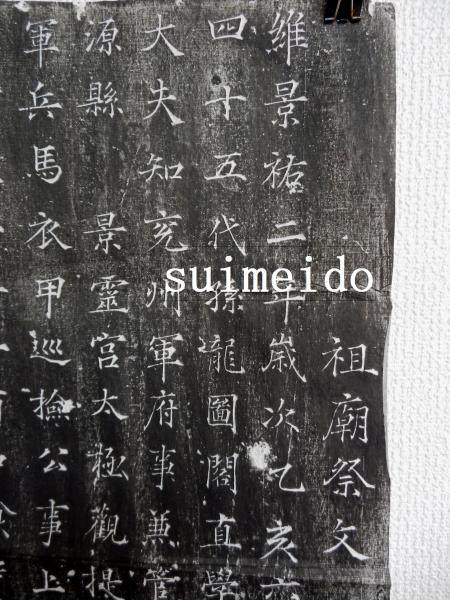 祖廟祭文
維景祐二年歲次乙亥六
四十五代孫龍圖閣直學
大夫知兖州軍府事兼管
源縣景靈宮太極觀提
軍兵馬衣甲巡撿公事上
suimeido